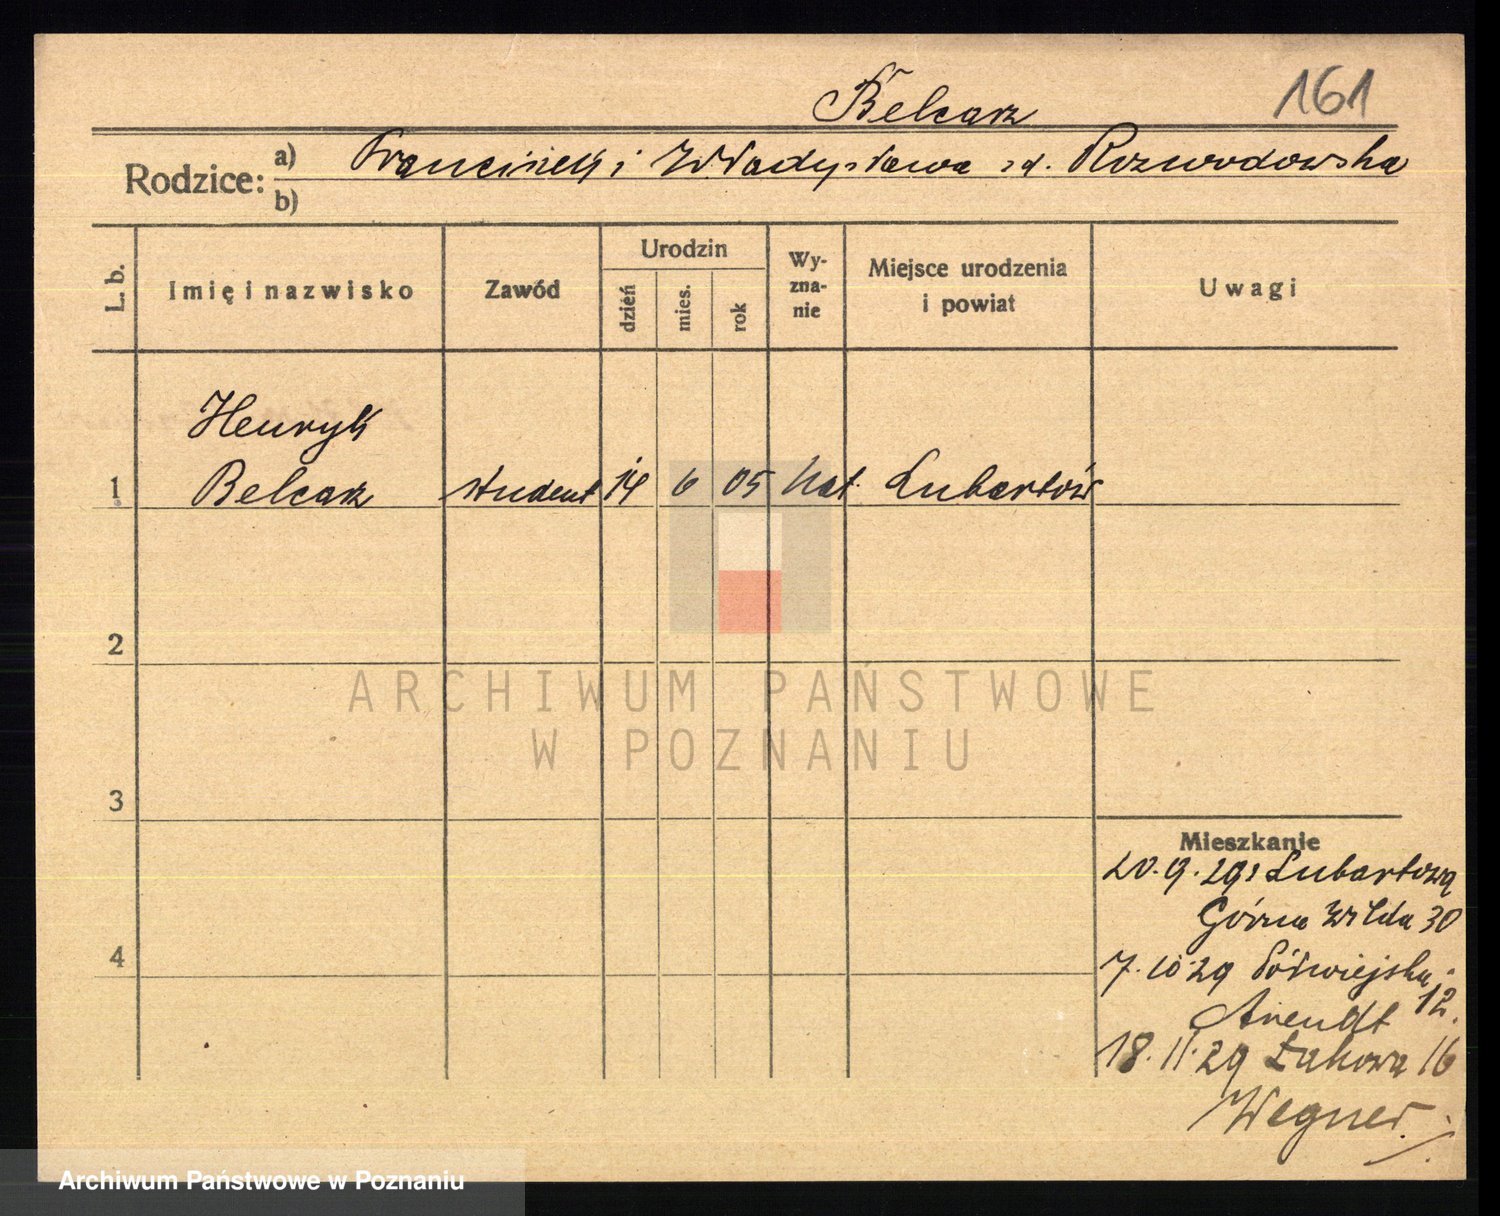 Belcarz 161
Rodzice: a) Franciszek i Władysława z d. Rozwodowska
b)
L. b. Imię i nazwisko Zawód Urodzin dzień mies. rok Wy-zna-nie Miejsce urodzenia i powiat Uwagi
Henryk
1 Belcarz student 14 6 05 kat. Lubartów
2
ARCHIWUM PAŃSTWOWE
W POZNANIU
3
Mieszkanie
20.9.29 z Lubartowa
Górna Wilda 30
4 7.10.29 Półwiejska
12.
Arendt
18.11.29 Łąkowa 16
Wegner
Archiwum Państwowe w Poznaniu